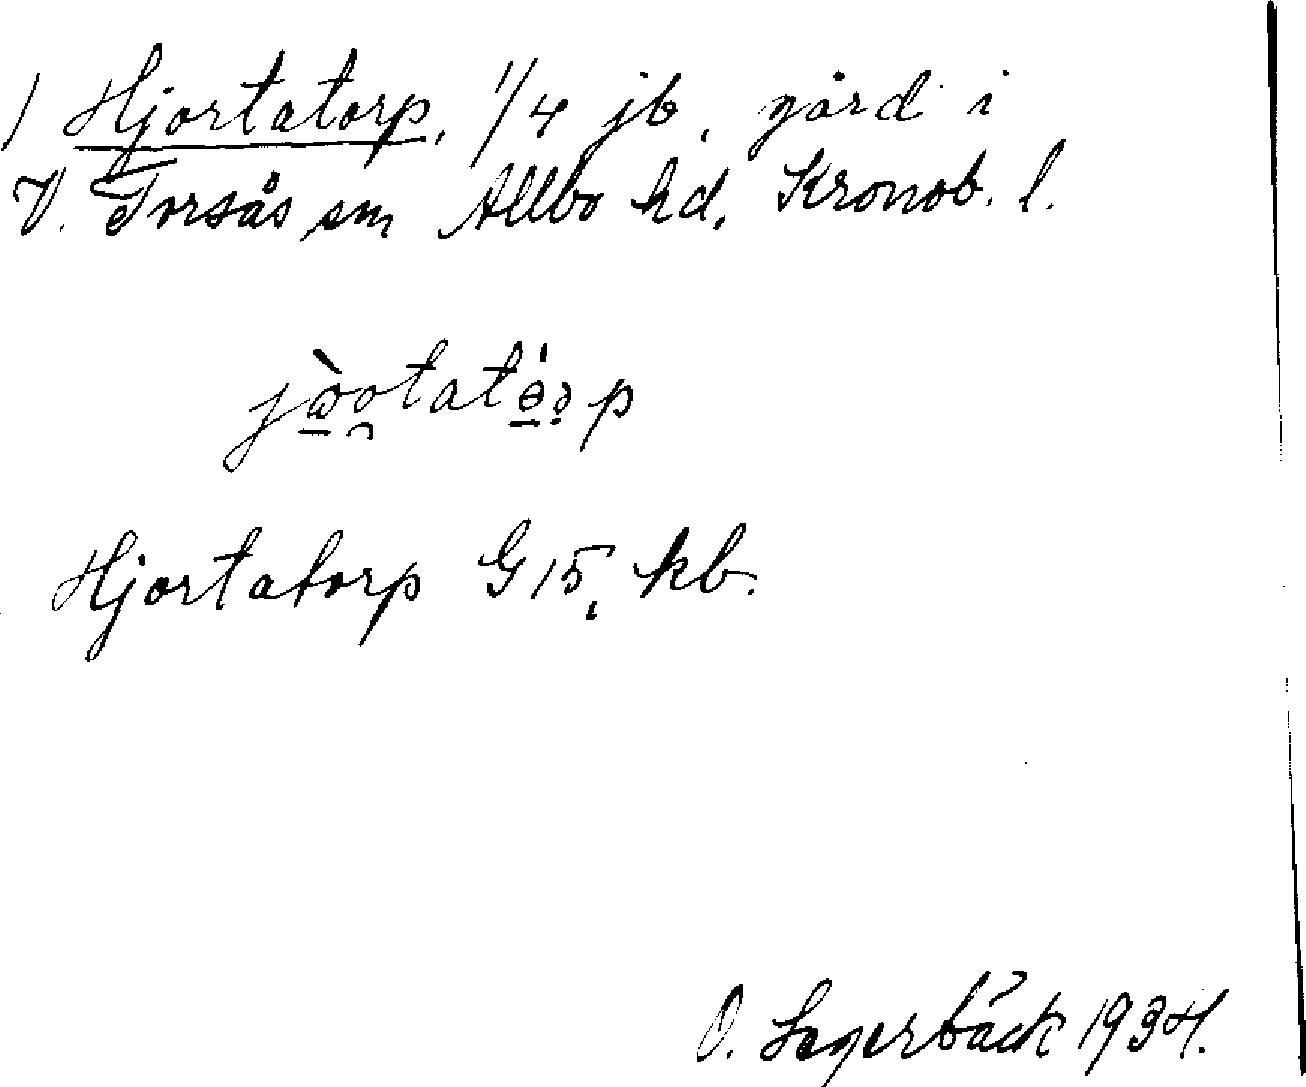 1 Hjortatorp, 1/4 jb, gård i
V. Torsås sn Allbo hd, Kronob. l.
Hjortatorp G 15, kb.
O. Lagerbäck 1934.